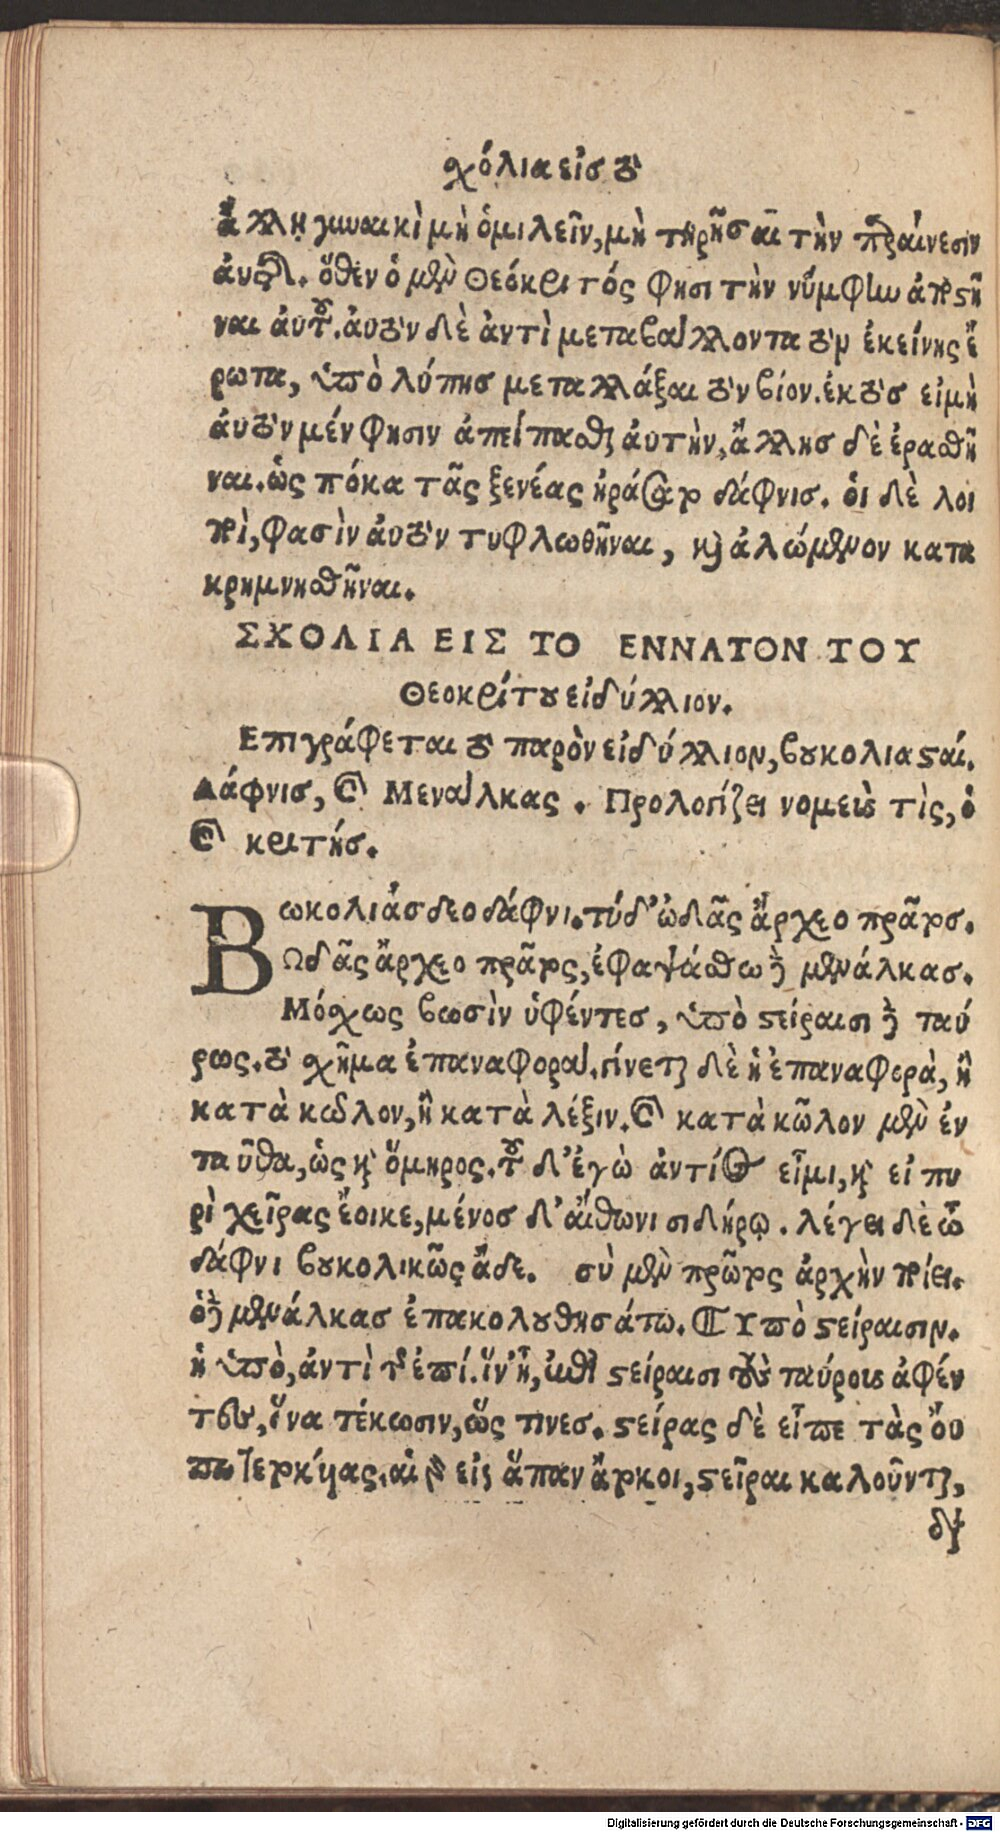 χόλια εἰσ τὸ
ἄλλῃ γυναικὶ μὴ ὁμιλεῖν, μὴ τηρῆσαι τὴν παραίνεσιν
ὅθεν ὁ μὲν Θεόκριτός φησι τὴν νύμφην ἀποστῆ
ναι ἀυτοῦ. ἀυτὸν δὲ ἀντὶ μεταβαλλοντα τὸν ἐκείνης ἔ
ρωτα, ὑπὸ λύπησ μεταλλάξαι τὸν βίον. ἐκτὸσ εἰμὴ
ἀυτὸν μέν φησιν ἀπείπασθαι ἀυτὴν, ἄλλησ δὲ ἐρασθῆ
ναι. ὡς πόκα τᾶς ξενέας ἠράσατο δάφνισ. ὁι δὲ λοι
ποὶ, φασὶν ἀυτὸν τυφλωθῆναι, καὶ ἀλώμενον κατα
κρημνησθῆναι.
ΣΧΟΛΙΑ ΕΙΣ ΤΟ ΕΝΝΑΤΟΝ ΤΟΥ
Θεοκρίτου εἰδύλλιον.
Επιγράφεται τὸ παρὸν εἰδύλλιον, βουκολιασταί.
Δάφνισ, καὶ Μεναλκας. Προλογίζει νομεύς τὶς, ὁ
καὶ κριτήσ.
Βωκολιάσδεο δάφνι. τύδ' ὠδᾶς ἄρχεο πρᾶτοσ.
Ωδᾶς ἄρχεο πρᾶτος, ἐφαψάσθω δὲ μενάλκασ.
Μόσχως βωσὶν ὑφέντεσ, ὑπὸ στείραισι δὲ ταύ
ρως. τὸ σχῆμα ἐπαναφορα. γίνεται δὲ ἡ ἐπαναφορὰ, ἢ
κατὰ κῶλον, ἢ κατὰ λέξιν. καὶ κατὰ κῶλον μὲν ἐν
ταῦθα, ὡς καὶ ὅμηρος. τοῦ δ' ἐγὼ ἀντίος εἶμι, καὶ εἰ πυ
ρὶ χεῖρας ἔοικε, μένοσ δ' αἴθωνι σιδήρῳ. λέγει δὲ ὦ
δάφνι βουκολικῶς ᾆδε. σὺ μὲν πρῶτος ἀρχὴν ποίει.
ὁ δὲ μενάλκασ ἐπακολουθησάτω. ℂ Υπὸ στείραισιν.
ἡ ὑπὸ, ἀντὶ τῆς ἐπί. ἵν' ᾖ, ἐπὶ στείραισι τοὺς ταύρους ἀφέν
τες, ἵνα τέκωσιν, ὥς τινεσ. στείρας δὲ εἶπε τὰς ὄυ
πω τετοκυίας. αἱ γὰρ εἰς ἅπαν ἄτοκοι, στεῖραι καλοῦνται,
Digitalisierung gefördert durch die Deutsche Forschungsgemeinschaft - DFG